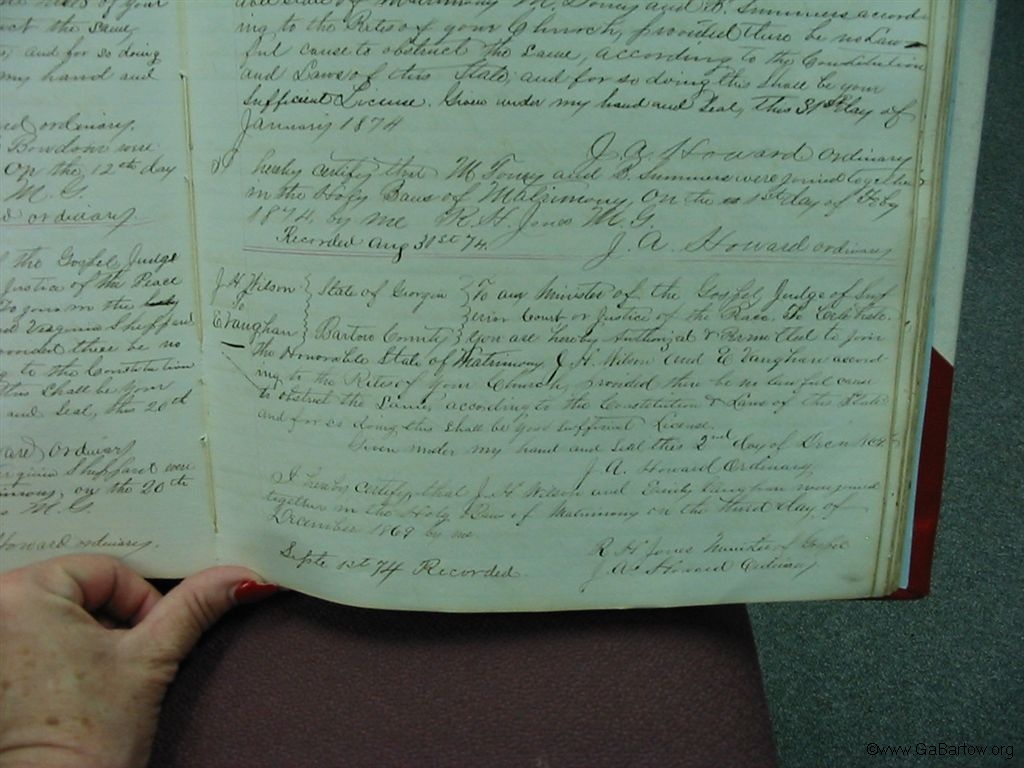 ects of your
uct the same
and for so doing
my hand and
ordinary.
Bowdom were
On the 12th day
M. G.
ordinary
of the Gospel, Judge
Justice of the Peace
To join in the
Virginia Sheppard
provided there be no
to the Constitution
this shall be your
and Seal, this 20th
ordinary
Virginia Sheppard were
on the 20th
M. G.
Howard ordinary.
able State of Matrimony M. Toney and S. Summers accord
ing to the Rites of your Church, provided there be no Law
ful cause to obstruct the same, according to the Constitution
and Laws of this State; and for so doing this shall be your
Sufficient License. Given under my hand and Seal, this 31st day of
January 1874
J. A. Howard ordinary
I hereby certify that M Toney and S. Summers were joined together
in the Holy Bans of Matrimony, On the 1st day of Feby
1874 by me R. H. Jones M. G.
Recorded Aug 31st 74. J. A. Howard ordinary
J. H. Wilson State of Georgia To any Minister of the Gospel, Judge of Sup
to erior Court or Justice of the Peace to Celebrate.
E Vaughan Bartow County You are hereby Authorized & Permitted to join
the Honorable State of Matrimony J. H. Wilson and E Vaughan accord
ing to the Rites of your Church, provided there be no lawful cause
to obstruct the Same, according to the Constitution & Laws of this State
and for so doing this shall be your sufficient License.
Given under my hand and Seal this 2nd day of Decr 1869
J. A. Howard Ordinary
I hereby certify, that J. H Wilson and Emily Vaughan were joined
together in the Holy Bans of Matrimony on the third day of
December 1869 by me
R H Jones Minister of Gospel
Septe 1st 74 Recorded J. A. Howard Ordinary
©www.GaBartow.org